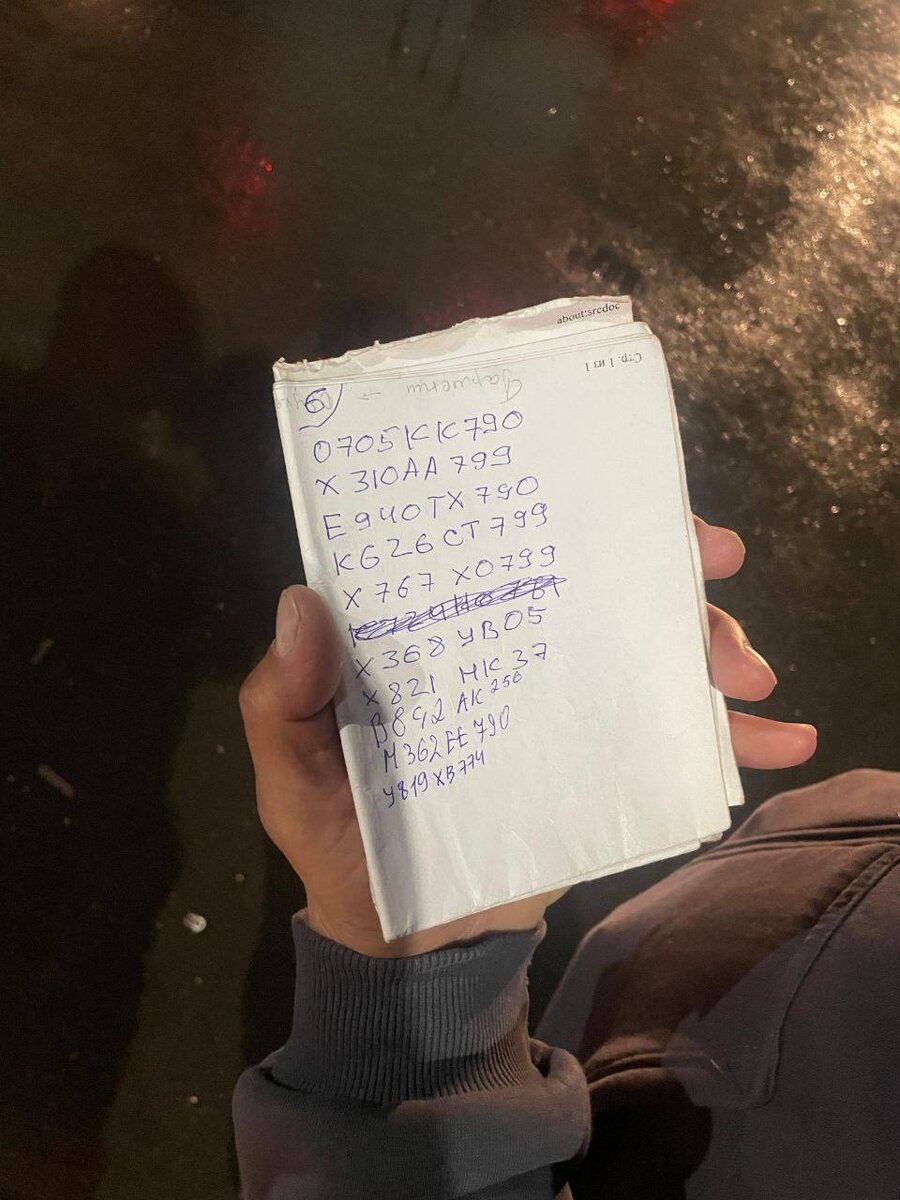 about:srcdoc
Стр. 1 из 1
6
О705КК790
Х310АА799
Е940ТХ790
К626СТ799
Х767 ХО799
Х368 УВ05
Х821 НК37
В892 АК256
М362ЕЕ790
У819ХВ774